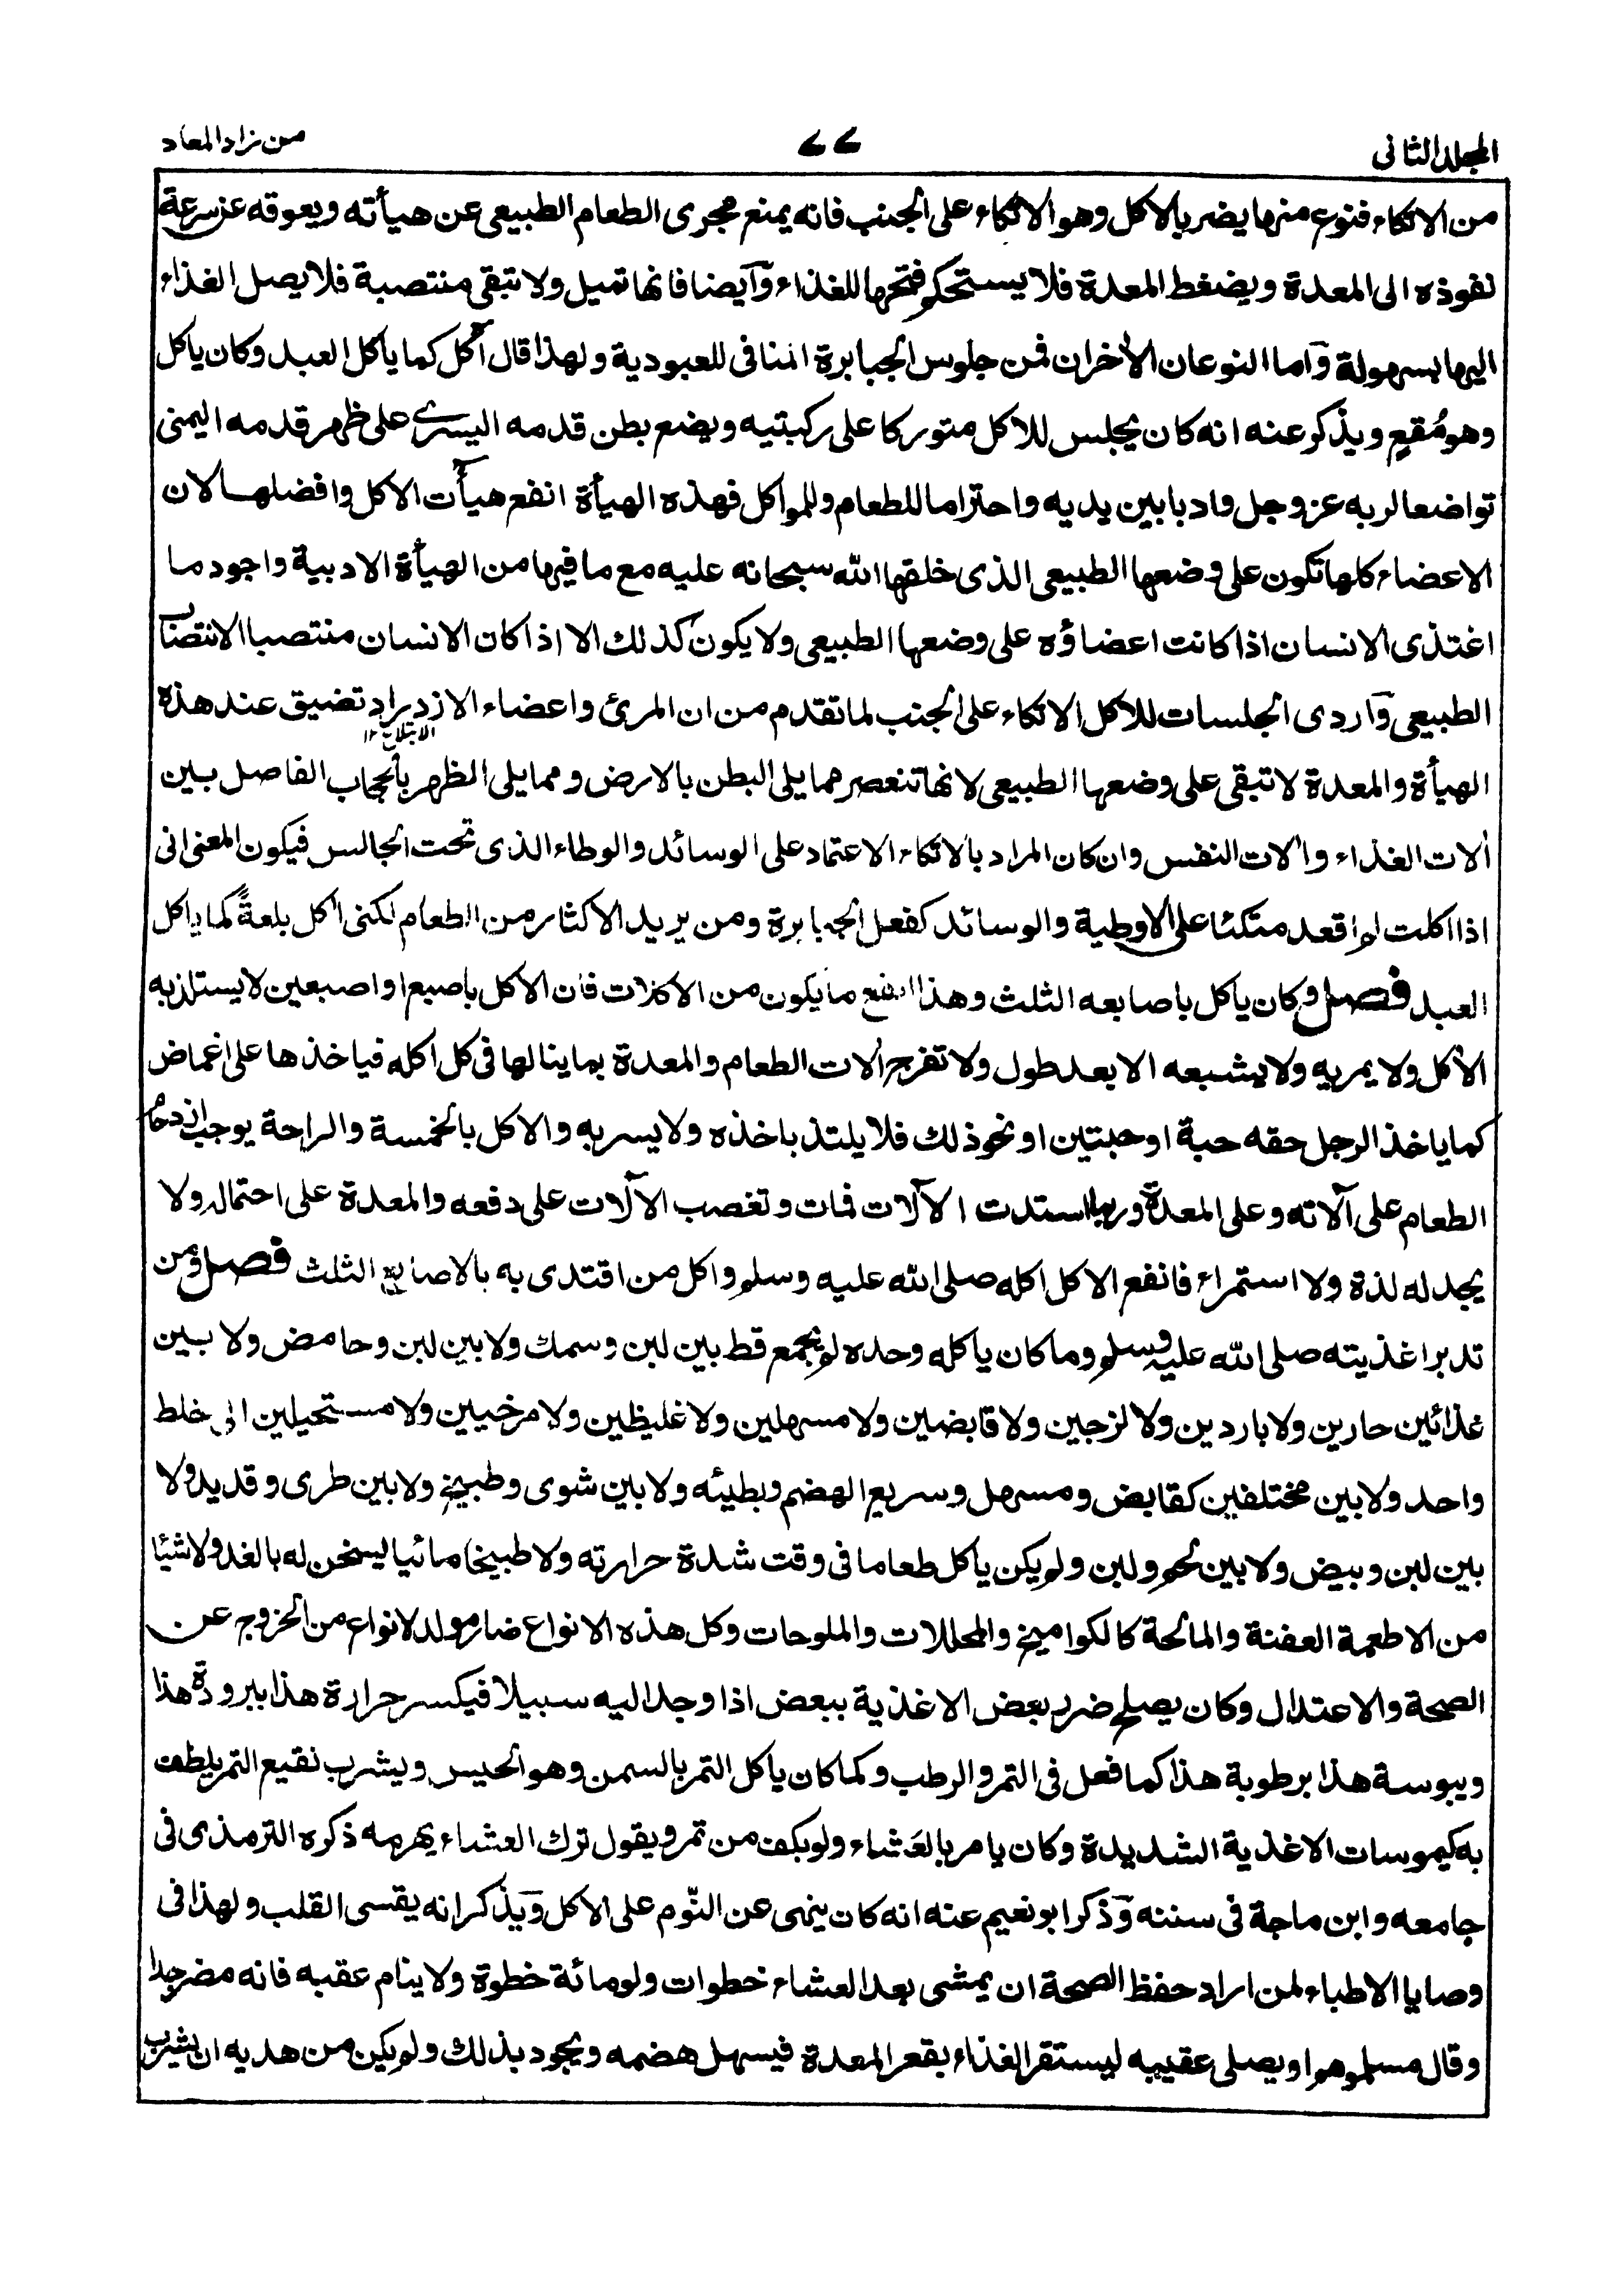 المجلد الثانى
٧٧
من زاد المعاد
من الاتكاء فنوع منها يضر بالاكل وهو الاتكاء على الجنب فانه يمنع مجرى الطعام الطبيعى عن هيأته ويعوقه عن سرعة
نفوذه الى المعدة ويضغط المعدة فلا يستحكم فتحها للغذاء وآيضا فانها تميل ولا تبقى منتصبة فلا يصل الغذاء
اليها بسهولة وآما النوعان الأخران فمن جلوس الجبابرة المنافى للعبودية ولهذا قال آكل كما ياكل العبد وكان ياكل
وهو مُقعٍ ويذكر عنه انه كان يجلس للاكل متوركا على ركبتيه ويضع بطن قدمه اليسرے على ظهر قدمه اليمنى
تواضعا لربه عز وجل وادبا بين يديه واحتراما للطعام وللمواكل فهذه الهيأة انفع هيأت الاكل وافضلها لان
الاعضاء كلها تكون على وضعها الطبيعى الذى خلقها الله سبحانه عليه مع ما فيها من الهيأة الادبية واجود ما
اغتذى الانسان اذا كانت اعضاؤه على وضعها الطبيعى ولا يكون كذلك الا اذا كان الانسان منتصبا الانتصاب
الطبيعى وآردى الجلسات للاكل الاتكاء على الجنب لما تقدم من ان المرئ واعضاء الازديراد تضيق عند هذه
الابتلاع ١٢
الهيأة والمعدة لا تبقى على وضعها الطبيعى لانها تنعصر مما يلى البطن بالارض ومما يلى الظهر بالحجاب الفاصل بين
ألات الغذاء وألات النفس وان كان المراد بالاتكاء الاعتماد على الوسائد والوطاء الذى تحت الجالس فيكون المعنى انى
اذا اكلت لم اقعد متكئا على الاوطية والوسائد كفعل الجبابرة ومن يريد الاكثار من الطعام لكنى أكل بلغةً كما ياكل
العبد فصل وكان ياكل باصابعه الثلث وهذا انفع ما يكون من الاكلات فان الاكل باصبع او اصبعين لا يستلذ به
الأكل ولا يمريه ولا يشبعه الا بعد طول ولا تفرح ألات الطعام والمعدة بما ينالها فى كل اكله فياخذها على اغماض
كما ياخذ الرجل حقه حبة او حبتين او نحو ذلك فلا يلتذ باخذه ولا يسر به والاكل بالخمسة والراحة يوجب ازدحام
الطعام على آلاته وعلى المعدة وربما استدت الآلات فمات وتغصب الآلات على دفعه والمعدة على احتماله ولا
يجد له لذة ولا استمراء فانفع الاكل اكله صلى الله عليه وسلم واكل من اقتدى به بالاصابع الثلث فصل ومن
تدبر اغذيته صلى الله عليه وسلم وما كان ياكله وحده لم يجمع قط بين لبن وسمك ولا بين لبن وحامض ولا بين
غذائين حارين ولا باردين ولا لزجين ولا قابضين ولا مسهلين ولا غليظين ولا مرخيين ولا مستحيلين الى خلط
واحد ولا بين مختلفين كقابض ومسهل وسريع الهضم وبطيئه ولا بين شوى وطبيخ ولا بين طرى وقديد ولا
بين لبن وبيض ولا بين لحم ولبن ولم يكن ياكل طعاما فى وقت شدة حرارته ولا طبيخا مائيا ليسخن له بالغد ولا شيئا
من الاطعمة العفنة والمالحة كالكواميخ والمخللات والملوحات وكل هذه الانواع ضار مولد لانواع من الخروج عن
الصحة والاعتدال وكان يصلح ضرر بعض الاغذية ببعض اذا وجد اليه سبيلا فيكسر حرارة هذا ببرودة هذا
ويبوسة هذا برطوبة هذا كما فعل فى التمر والرطب وكما كان ياكل التمر بالسمن وهو الحيس ويشرب نقيع التمر يلطف
به كيموسات الاغذية الشديدة وكان يامر بالعَشاء ولو بكف من تمر ويقول ترك العشاء يهرمه ذكره الترمذى فى
جامعه وابن ماجة فى سننه وَذكر ابو نعيم عنه انه كان ينهى عن النّوم على الاكل وَيذكر انه يقسى القلب ولهذا فى
وصايا الاطباء لمن اراد حفظ الصحة ان يمشى بعد العشاء خطوات ولو مائة خطوة ولا ينام عقبه فانه مضر جدا
وقال مسلموهم او يصلى عقيبه ليستقر الغذاء بقعر المعدة فيسهل هضمه ويجود بذلك ولم يكن من هديه ان يشرب